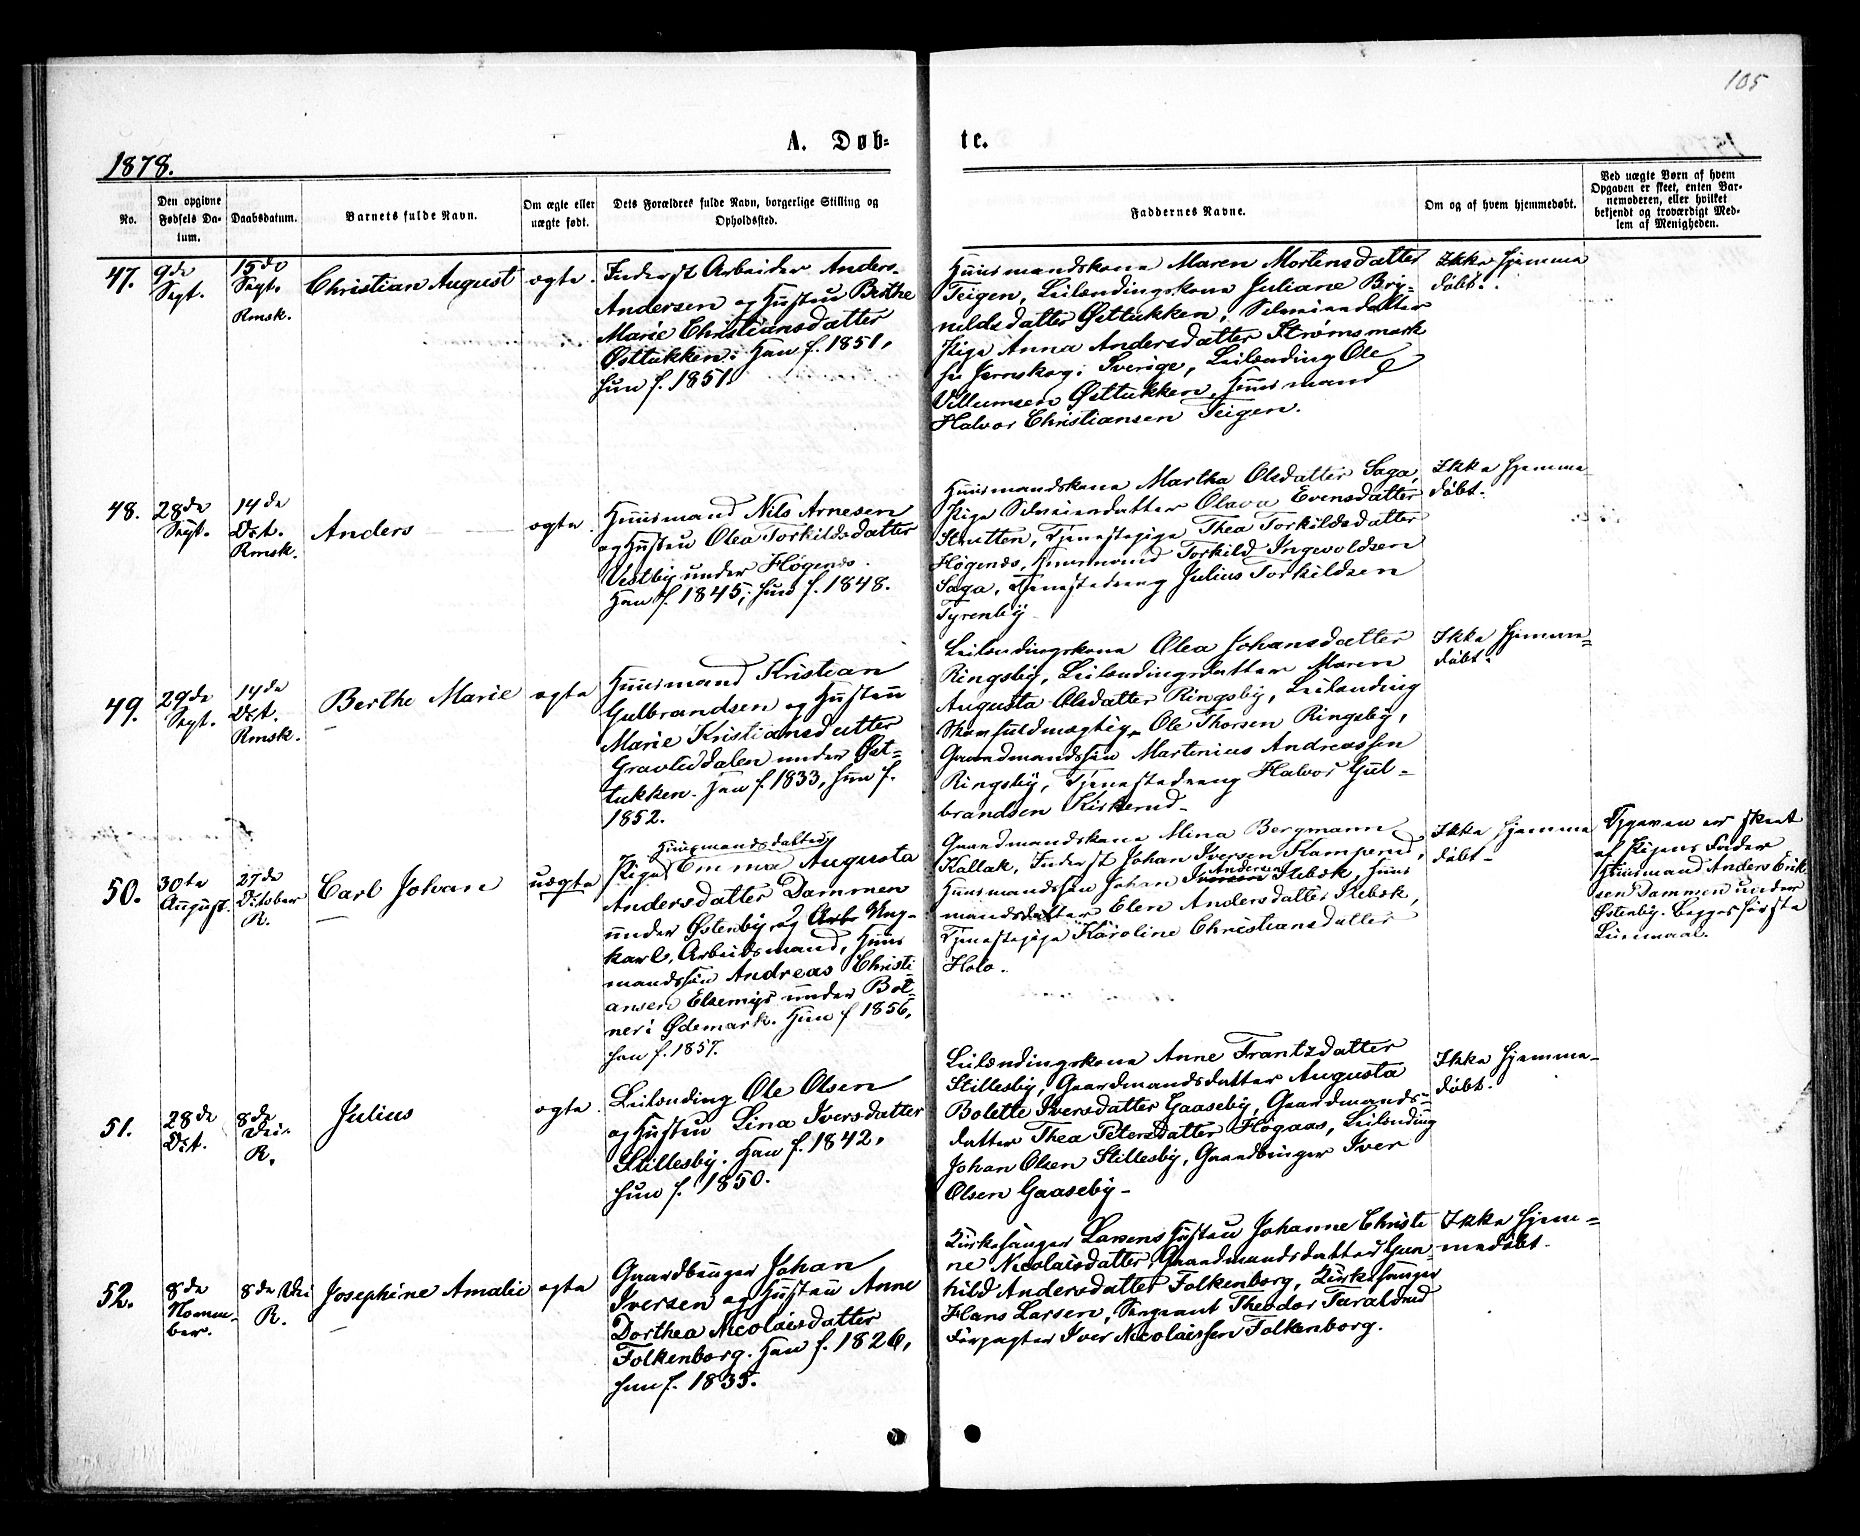 105
1878.
A. Døb-
te.
No.
Den opgivne
Fødsels Da-
tum.
Daabsdatum.
Barnets fulde Navn.
Om ægte eller
uægte født.
Dets Forældres fulde Navn, borgerlige Stilling og
Opholdssted.
Faddernes Navne.
Om og af hvem hjemmedøbt.
Ved uægte Børn af hvem
Opgaven er skeet, enten Bar-
nemoderen, eller hvilket
bekjendt og troværdigt Med-
lem af Menigheden.
47.
9de
Sept.
15de
Sept.
Rmsk.
Christian August
ægte.
Inderst Arbeider Anders
Andersen og Hustru Berthe
Marie Christiansdatter
Østtukken. Han f. 1851,
hun f. 1851
Huusmandskone Maren Mortensdatter
Teigen, Leilændingskone Juliane Brÿ-
nildsdatter Østtukken, Selveierdatter
Pige Anna Andersdatter Strømsmark
Jernskog i Sverige, Leilænding Ole
Villumsen Østtukken, Huusmand
Halvor Christiansen Teigen.
Ikke hjemme
døbt.
48.
28de
Sept.
14de
Oct.
Rmsk.
Anders
ægte.
Huusmand Nils Arnesen
og Hustru Olea Torkildsdatter
Vestbÿ under Høgenæs.
Han f. 1845, hun f. 1848.
Huusmandskone Martha Olsdatter Saga,
Pige Selveierdatter Olava Evensdatter
Strutten, Tjenestepige Thea Torkildsdatter
Høgenæs, Huusmand Torkild Ingvoldsen
Saga, Tjenestedreng Julius Torkildsen
Tyrenbÿ
Ikke hjemme
døbt.
49.
29de
Sept.
14de
Oct.
Rmsk.
Berthe Marie
ægte
Huusmand Kristian
Gulbrandsen og Hustru
Marie Kristiansdatter
Gravliddalen under Øst-
tukken. Han f. 1833, hun f.
1852.
Leilændingskone Olea Johansdatter
Ringsbÿ, Leilændingsdatter Maren
Augusta Olsdatter Ringsbÿ, Leilænding
Ole Thorsen Ringsbÿ,
Gaardmandssøn Martinius Andreassen
Ringsbÿ, Tjenestedreng Halvor Gul-
brandsen Kirkerud
Ikke hjemme-
døbt.
50.
30te
August.
27de
October
R.
Carl Johan
uægte
Huusmandsdatter
Pige Emma Augusta
Andersdatter Dammen
under Østenbÿ, og Arbe Ung-
karl, Arbeidsmand, Huus
mandssøn Andreas Christi
ansen Elsemÿr under Bøt-
ner i Ødemark. Hun f 1856,
han f. 1857.
Gaardmandskone Mina Bergmann
Kallak, Inderst Johan Iversen Kamperud,
Huusmandssøn Johan Iversen Andersen Ilebæk, Huus
mandsdatter Elen Andersdatter Ilebæk,
Tjenestepige Karoline Christiansdatter
Holo.
Ikke hjemme
døbt-
Opgaven er skeet
af Pigens Fader
Huusmand Anders Erik
sen Dammen under
Østenbÿ. Begges første
Leiermaal.
51.
28de
Oct.
8de
Dec.
R.
Julius
ægte.
Leilænding Ole Olsen
og Hustru Lina Iversdatter
Stillesbÿ. Han f. 1842,
hun f. 1850.
Leilændingskone Anne Frantzdatter
Stillesbÿ, Gaardmandsdatter Augusta
Bolette Iversdatter Gaasebÿ, Gaardmands-
datter Thea Petersdatter Høgaas, Leilænding
Johan Olsen Stillesbÿ, Gaardbruger Iver
Olsen Gaasebÿ-
Ikke hjemme-
døbt.
52.
8de
Novem-
ber.
8de Dec
R.
Josephine Amalie
ægte
Gaardbruger Johan
Iversen og Hustru Anne
Dorthea Nicolaisdatter
Folkenborg. Han f. 1826,
hun f. 1835.
Kirkesanger Larsens Hustru Johanne Christi
ne Nicolaisdatter, Gaardmandsdatter Gun-
hild Andersdatter Folkenborg, Kirkesanger
Hans Larsen, Sergeant Theodor Taraldrud
Forpagter Iver Nicolaissen Folkenborg.
Ikke hjem-
medøbt.